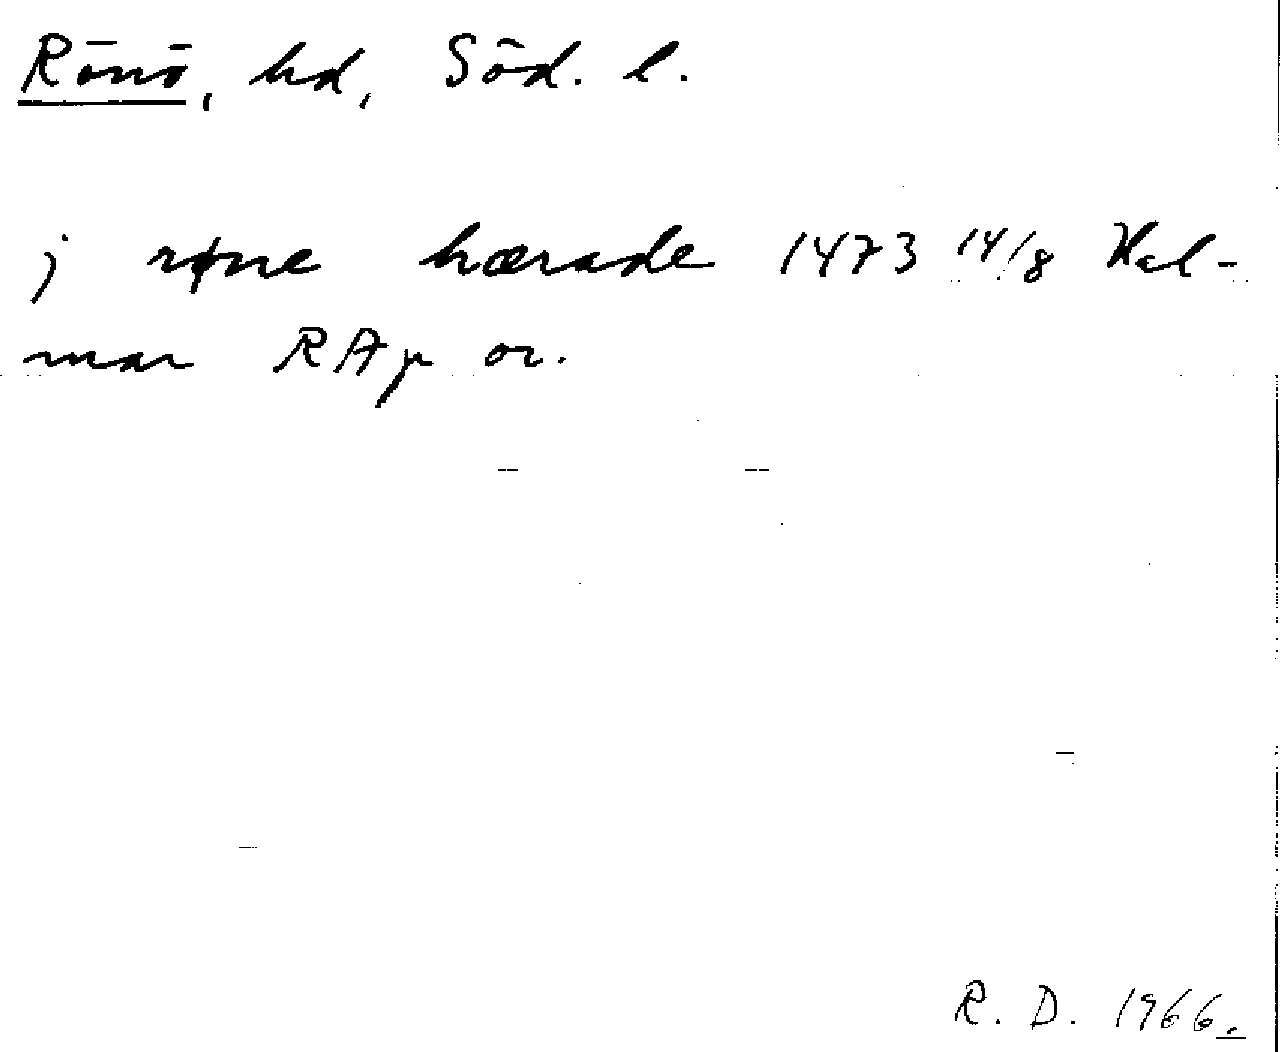 Rönö, hd, Söd. l.
j røne hærade 1473 14/8 Kal-
mar RAp or.
R. D. 1966.